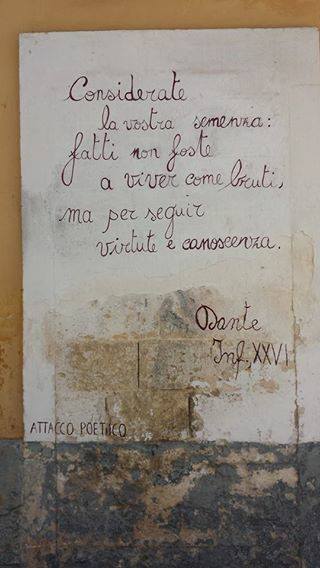 Considerate
la vostra semenza:
fatti non foste
a viver come bruti,
ma per seguir
virtute e canoscenza.
Dante
Inf. XXVI
ATTACCO POETICO